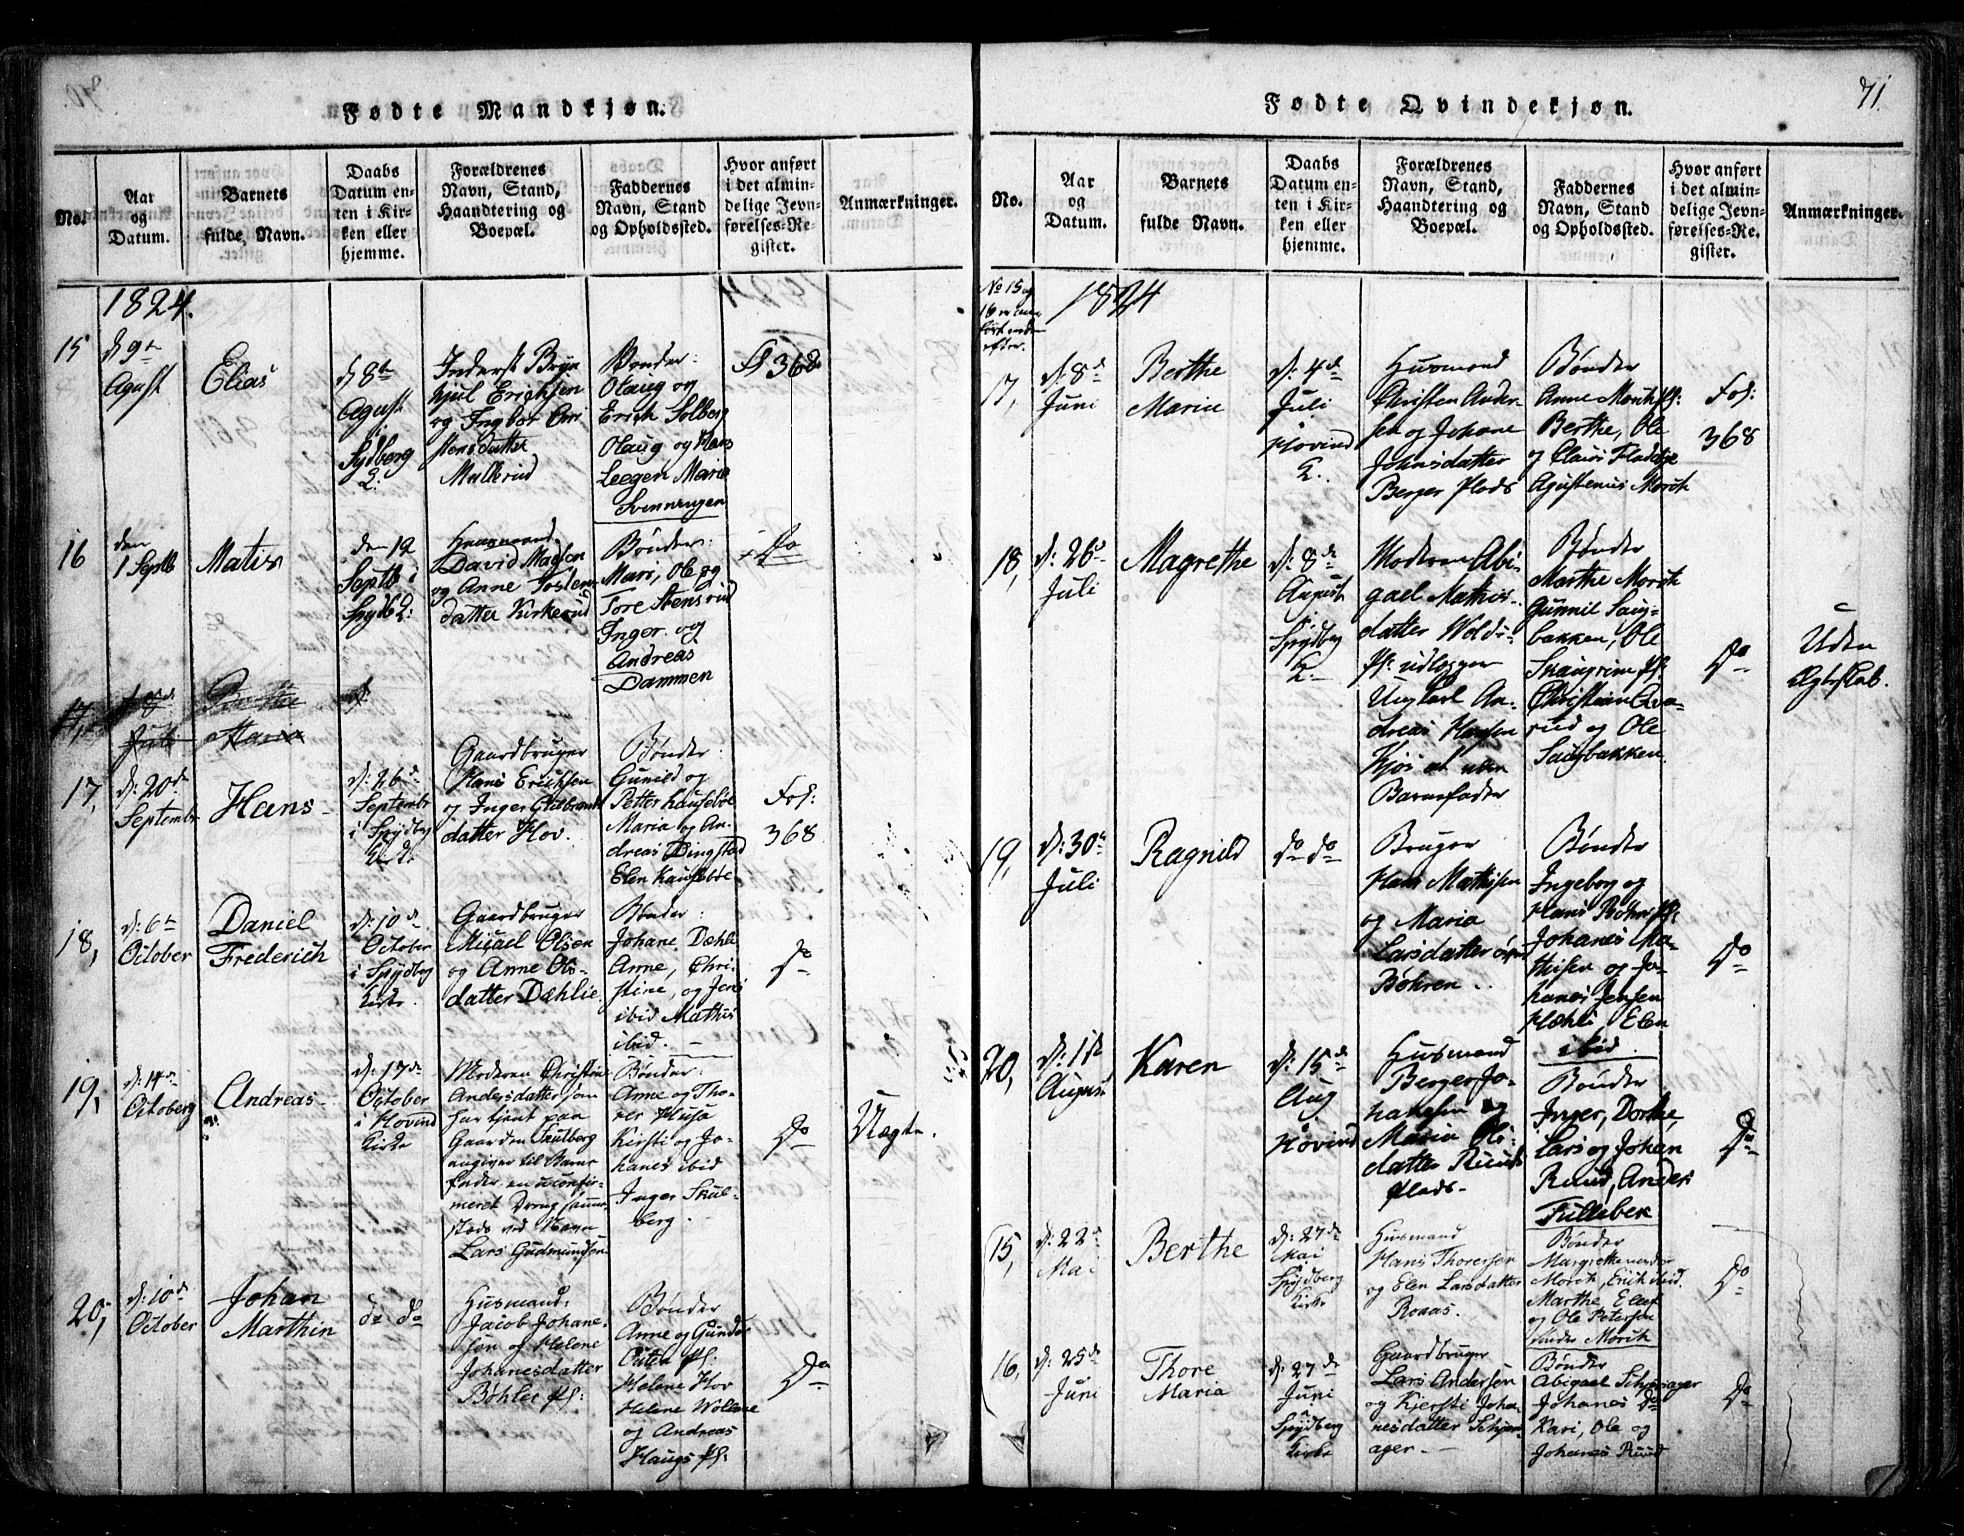 Fødte Mandkjøn.
No.
Aar
og
Datum.
Barnets
fulde Navn.
Daabs
Datum en-
ten i Kir-
ken eller
hjemme.
Forældrenes
Navn, Stand,
Haandtering og
Boepæl.
Faddernes
Navn, Stand
og Opholdssted.
Hvor anført
i det almin-
delige Jevn-
førelses-Re-
gister.
Anmærkninger.
1824.
15
d 9de
Agust
Elias
d 8de
Agust
i
Sydberg
K:
Inderst Bryn
hjul Erichsen
og Ingbor
datter
Mallerud
Bønder:
Olaug og
Erich Solberg
Olaug og Hans
Leegen Marie
Svenneugen
368
16
den
1 Septb
Matis
den 12
Septb i
Spydb K:
Huusmand
David Magbon
og Anne Tosten
datter Kirkerud
Bønder:
Mari, Ole og
Tore Stensrud
Inger og
Andreas
Dammen
Do
17,
Juli
Berthe
Maria
17,
d: 20de
Septembr
Hans
d: 26de
Septembr
i Spydbg
Gaardbruger
Hans Erichsen
og Inger Gulbrand
datter Hov.
Bønder:
Gunild og
Petter Kauseböe
Maria og An-
dreas Dingstad
Elen Kauseböe
Fol:
368
18,
d: 6te
October
Daniel
Frederich
d: 10de
October
i Spydbg
Kirke.
Gaardbruger
Micael Olsen
og Anne Ols-
datter Dæhlie
Bønder:
Johane Dæhli
Anne, Chri-
stine, og Jens
ibid Mathis
ibid.
Do
19,
d: 14de
October
Andreas
d: 17de
October
i Hovind
Kirke
Moderen Christine
Andersdatter som
har tjent paa
Gaarden Skulberg
angiver til Barne
fader en uconfir-
meret Dreng samme-
steds ved Navn
Lars Gudmundsen
Bønder:
Anne og Tho-
rer Husa
Kirsti og Jo-
hanes ibid
Inger Skul-
berg.
Do
Uægte.
20,
d: 10de
October
Johan
Marthin
do do
Husmand:
Jacob Johane-
sen og Helene
Johanesdatter
Bøhler Pl:
Bønder
Anne og Gunder
Outen Pl:
Helene Hov
Helene Wollene
og Andreas
Haugs Pl:
Do
Fødte Qvindekjøn.
71.
No.
Aar
og
Datum.
Barnets
fulde Navn.
Daabs
Datum en-
ten i Kir-
ken eller
hjemme.
Forældrenes
Navn, Stand,
Haandtering og
Boepæl.
Faddernes
Navn, Stand
og Opholdssted.
Hvor anført
i det almin-
delige Jevn-
førelses-Re-
gister.
Anmærkninger.
No 15 og
16 er an-
ført neden
efter.
1824
17,
d: 8de
Juni
Berthe
Marie
d: 4de
Juli
Hovind
K.
Husmand
Christen Ander-
sen og Johane
Johnsdatter
Berger Plads
Bønder
Anne Mørk Pl:
Berthe, Ole
og Claus Fladebye
Agustenus Mørck
Fol:
368
18,
d: 26de
Juli
Magrethe
d: 8de
August
Spydbg
K.
Moderen Abi-
gael Mathis-
datter Wolds-
Pl: udlægger
Ungkarl An-
dreas Hansen
Kjøs at være
Barnefader
Bønder
Marthe Morck
Gunnil Saug-
bakken, Ole
Skaugrim Pl.
Christian
og Ole
Saugbakken.
Do
Uden
Ægteskab.
19,
d: 30te
Juli
Ragnild
do do
Bruger
Hans Mathisen
og Maria
Larsdatter
Bøhren.
Bønder
Ingeborg og
Hans Bøhn Pl:
Johanes Ma-
thisen og Jo-
hanes Jensen
Hæhli, Elen
ibid.
Do
20,
d: 11te
August
Karen
d: 15de
Aug
Hovind
Husmand
Berger Jo-
hansen og
Maria Ols-
datter Ruuds
plads.
Bønder
Inger, Dorthe,
Lars og Johan
Ruud, Anders
Fulleber
Do
15,
d: 22de
Mai
Berthe
d: 27de
Mai
Spydberg
Kirke
Husmand
Hans Thoresen
og Elen Larsdatter
Roaas.
Bønder
Margrethe
Morck, Erik ibid.
Marthe, Elef
og Ole Petersen
Morck
Do
16,
d: 25de
Juni
Thore
Maria
d: 27de
Juni
Spydberg
Kirke
Gaardbruger
Lars Andersen
og Kjersti Joha-
nesdatter Schjør-
ager.
Bønder
Abigael Schjørager
Johanes do
Kari, Ole og
Johanes Ruud
Do